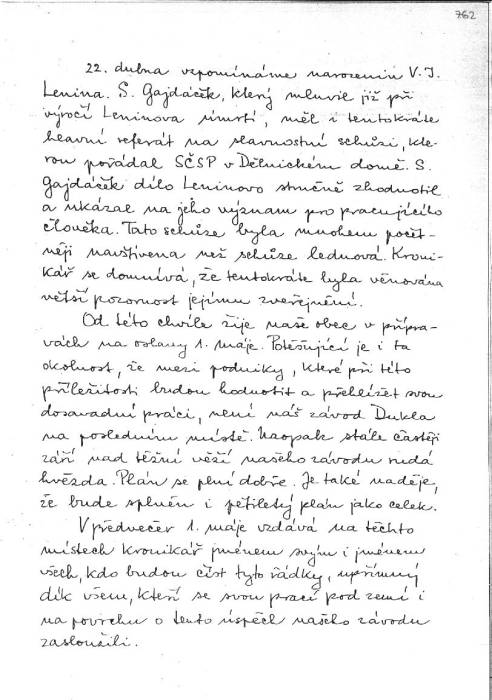 762
22. dubna vzpomínáme narozenin V. I.
Lenina. S. Gajdáček, který mluvil již při
výročí Leninova úmrtí, měl i tentokráte
hlavní referát na slavnostní schůzi, kte-
rou pořádal SČSP v Dělnickém domě. S.
Gajdáček dílo Leninovo stručně zhodnotil
a ukázal na jeho význam pro pracujícího
člověka. Tato schůze byla mnohem počet-
něji navštívena než schůze lednová. Kroni-
kář se domnívá, že tentokráte byla věnována
větší pozornost jejímu zveřejnění.
Od této chvíle žije naše obec v přípra-
vách na oslavy 1. máje. Potěšující je i ta
okolnost, že mezi podniky, které při této
příležitosti budou hodnotit a přehlížet svou
dosavadní práci, není náš závod Dukla
na posledním místě. Naopak stále častěji
září nad těžní věží našeho závodu rudá
hvězda. Plán se plní dobře. Je také naděje,
že bude splněn i pětiletý plán jako celek.
V předvečer 1. máje vzdává na těchto
místech kronikář jménem svým i jménem
všech, kdo budou číst tyto řádky, upřímný
dík všem, kteří se svou prací pod zemí i
na povrchu o tento úspěch našeho závodu
zasloužili.